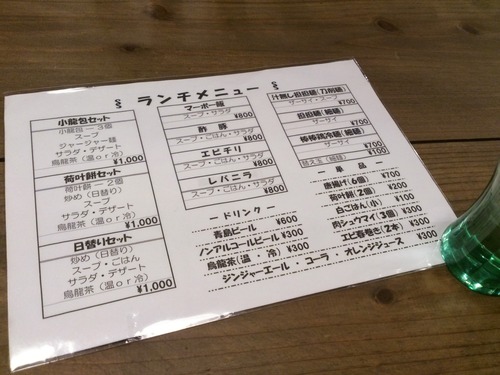 ランチメニュー
小龍包セット
小龍包 ― 3個
スープ
ジャージャー麺
サラダ・デザート
烏龍茶（温or冷）
¥1,000
荷叶餅セット
荷叶餅 ― 2個
炒め（日替り）
スープ
サラダ・デザート
烏龍茶（温or冷）
¥1,000
日替りセット
炒め（日替り）
スープ・ごはん
サラダ・デザート
烏龍茶（温or冷）
¥1,000
マーボー飯
スープ・サラダ
¥800
酢豚
スープ・ごはん・サラダ
¥800
エビチリ
スープ・ごはん・サラダ
¥800
レバニラ
スープ・ごはん・サラダ
¥800
― ドリンク ―
青島ビール ¥600
ノンアルコールビール ¥300
烏龍茶（温・冷） ¥300
ジンジャーエール・コーラ・オレンジジュース ¥300
汁無し担担麺（刀削麺）
ザーサイ・スープ
¥700
担担麺（細麺）
ザーサイ
¥700
棒棒鶏冷麺（細麺）
ザーサイ
¥700
替え玉（細麺） ¥100
― 単品 ―
唐揚げ（6個） ¥700
荷叶餅（2個） ¥200
白ごはん（小） ¥100
肉シュウマイ（3個） ¥300
エビ春巻き（2本） ¥300